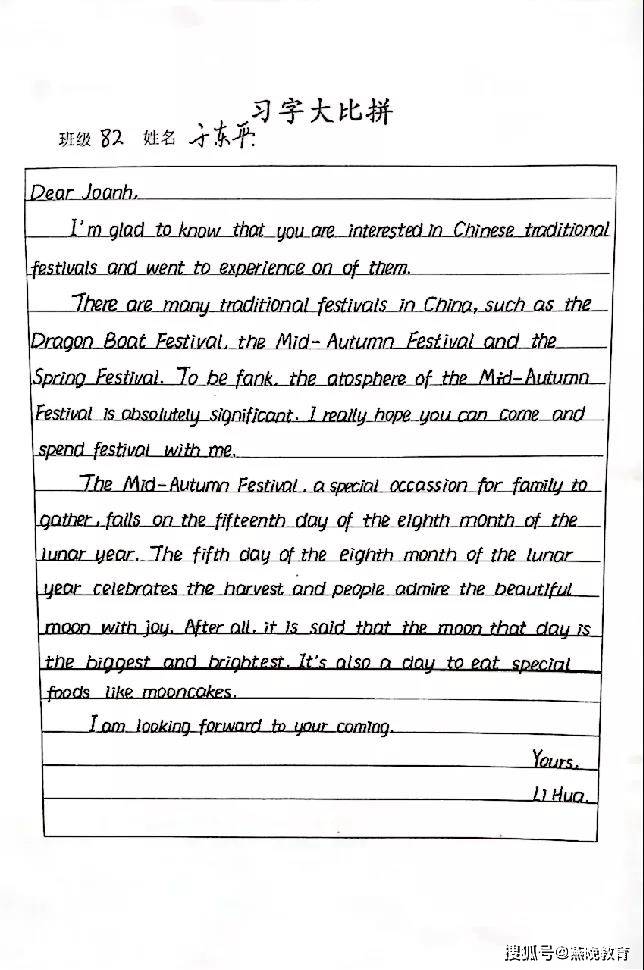 习字大比拼
班级 82 姓名 于东平
Dear Joanh,
I'm glad to know that you are interested in Chinese traditional
festivals and went to experience on of them.
There are many traditional festivals in China, such as the
Dragon Boat Festival, the Mid-Autumn Festival and the
Spring Festival. To be fank, the atosphere of the Mid-Autumn
Festival is absolutely significant. I really hope you can come and
spend festival with me.
The Mid-Autumn Festival, a special occassion for family to
gather, falls on the fifteenth day of the eighth month of the
lunar year. The fifth day of the eighth month of the lunar
year celebrates the harvest and people admire the beautiful
moon with joy. After all, it is said that the moon that day is
the biggest and brightest. It's also a day to eat special
foods like mooncakes.
I am looking forward to your coming.
Yours,
Li Hua.
搜狐号@蕉晚教育